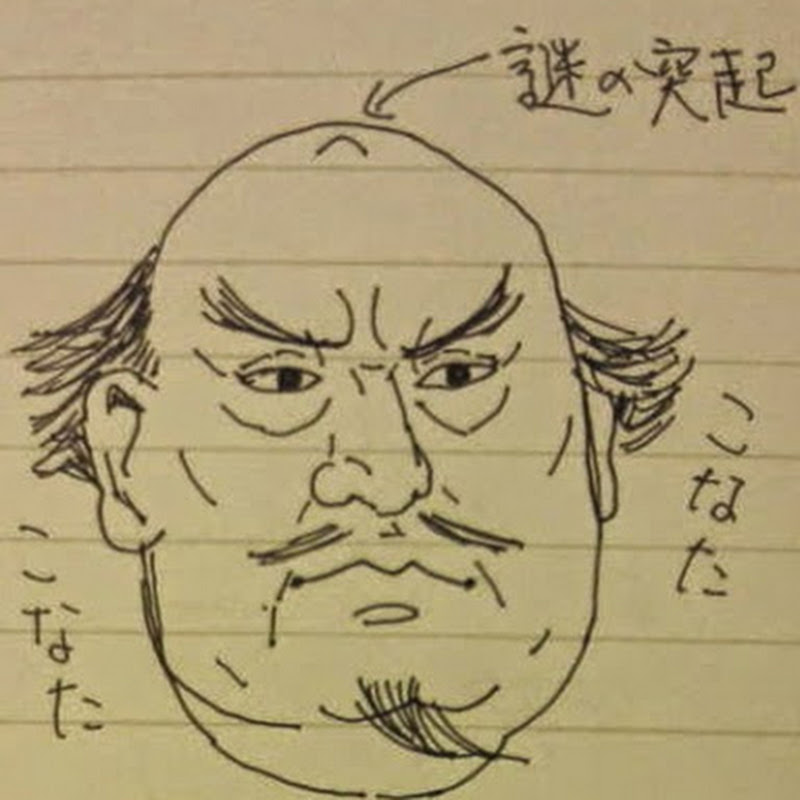 謎の突起
こなた
こなた